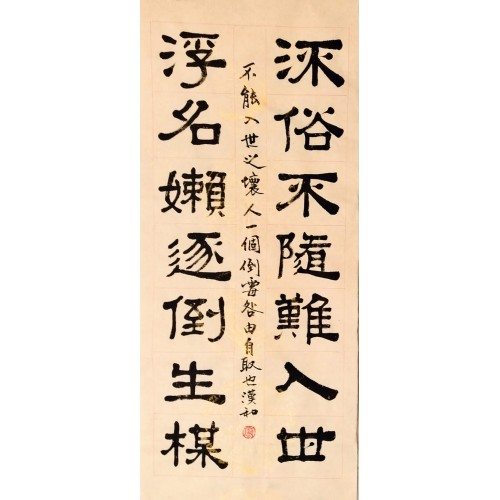 流俗不隨難入世
浮名嬾逐倒生楳
不能入世之壞人一個倒霉咎由自取也漢和